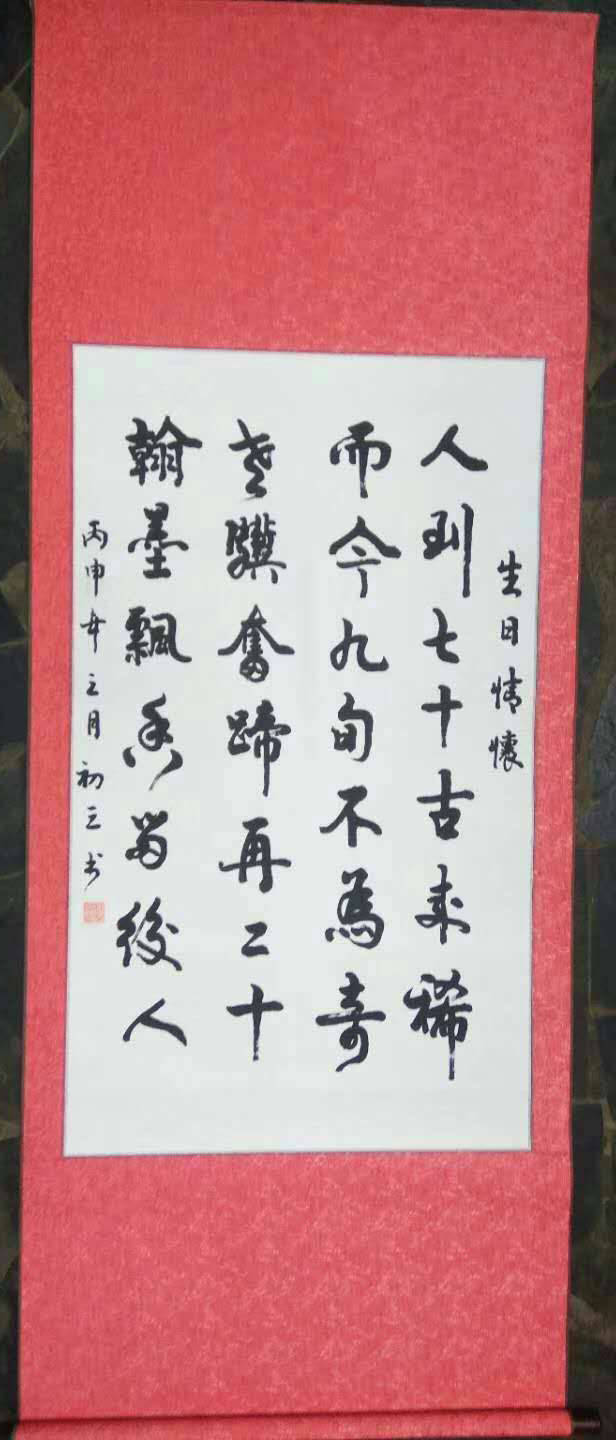 生日情懷
人到七十古来稀
而今九旬不為奇
老驥奮蹄再二十
翰墨飄香留後人
丙申年三月初三书